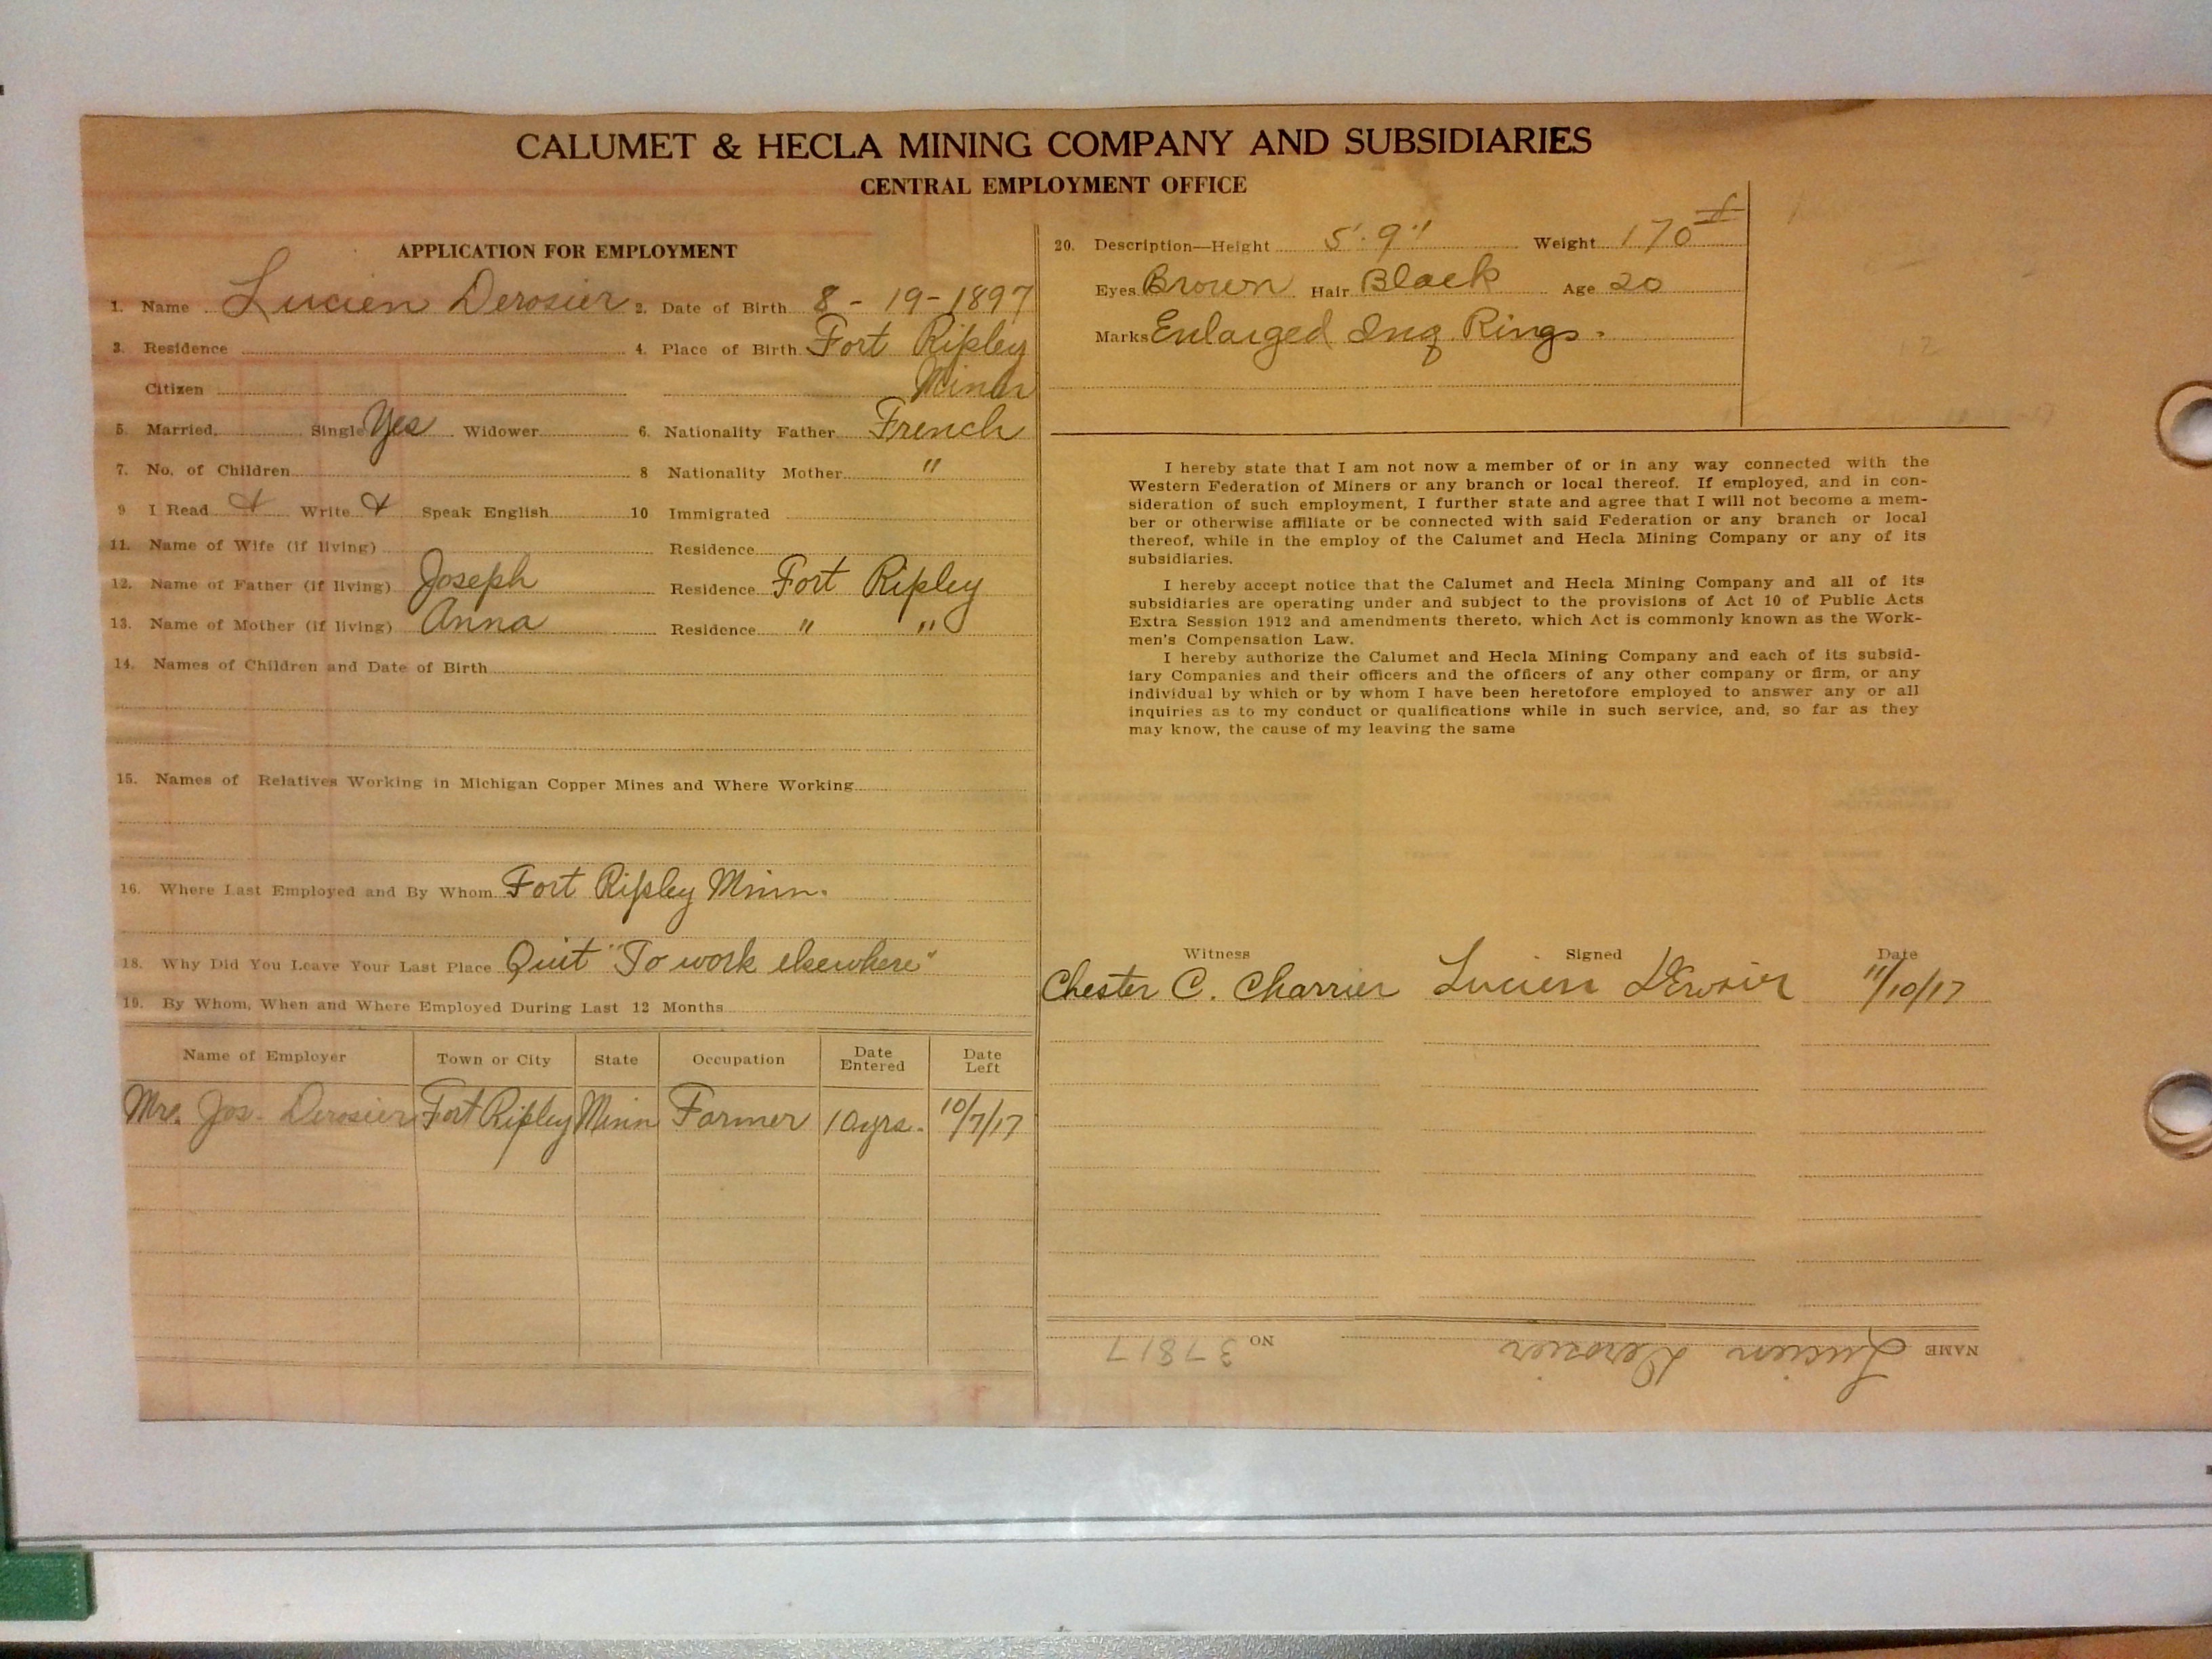 CALUMET & HECLA MINING COMPANY AND SUBSIDIARIES
CENTRAL EMPLOYMENT OFFICE
APPLICATION FOR EMPLOYMENT
1. Name Lucien Derosier 2. Date of Birth 8-19-1897
3. Residence 4. Place of Birth Fort Ripley
Citizen Minn
5. Married, Single Yes Widower 6. Nationality Father French
7. No. of Children 8 Nationality Mother "
9 I Read Write Speak English 10 Immigrated
11. Name of Wife (if living) Residence
12. Name of Father (if living) Joseph Residence Fort Ripley
13. Name of Mother (if living) Anna Residence " "
14. Names of Children and Date of Birth
15. Names of Relatives Working in Michigan Copper Mines and Where Working
16. Where Last Employed and By Whom Fort Ripley Minn.
18. Why Did You Leave Your Last Place Quit "To work elsewhere"
19. By Whom, When and Where Employed During Last 12 Months
Name of Employer Town or City State Occupation Date Entered Date Left
Mrs. Jos. Derosier Fort Ripley Minn Farmer 10 yrs. 10/7/17
20. Description—Height 5'.9" Weight 170#
Eyes Brown Hair Black Age 20
Marks Enlarged Ing Rings.
I hereby state that I am not now a member of or in any way connected with the
Western Federation of Miners or any branch or local thereof. If employed, and in con-
sideration of such employment, I further state and agree that I will not become a mem-
ber or otherwise affiliate or be connected with said Federation or any branch or local
thereof, while in the employ of the Calumet and Hecla Mining Company or any of its
subsidiaries.
I hereby accept notice that the Calumet and Hecla Mining Company and all of its
subsidiaries are operating under and subject to the provisions of Act 10 of Public Acts
Extra Session 1912 and amendments thereto, which Act is commonly known as the Work-
men's Compensation Law.
I hereby authorize the Calumet and Hecla Mining Company and each of its subsid-
iary Companies and their officers and the officers of any other company or firm, or any
individual by which or by whom I have been heretofore employed to answer any or all
inquiries as to my conduct or qualifications while in such service, and, so far as they
may know, the cause of my leaving the same
Witness Signed Date
Chester C. Charrier Lucien Derosier 11/10/17
NAME Lucien Derosier NO 37817